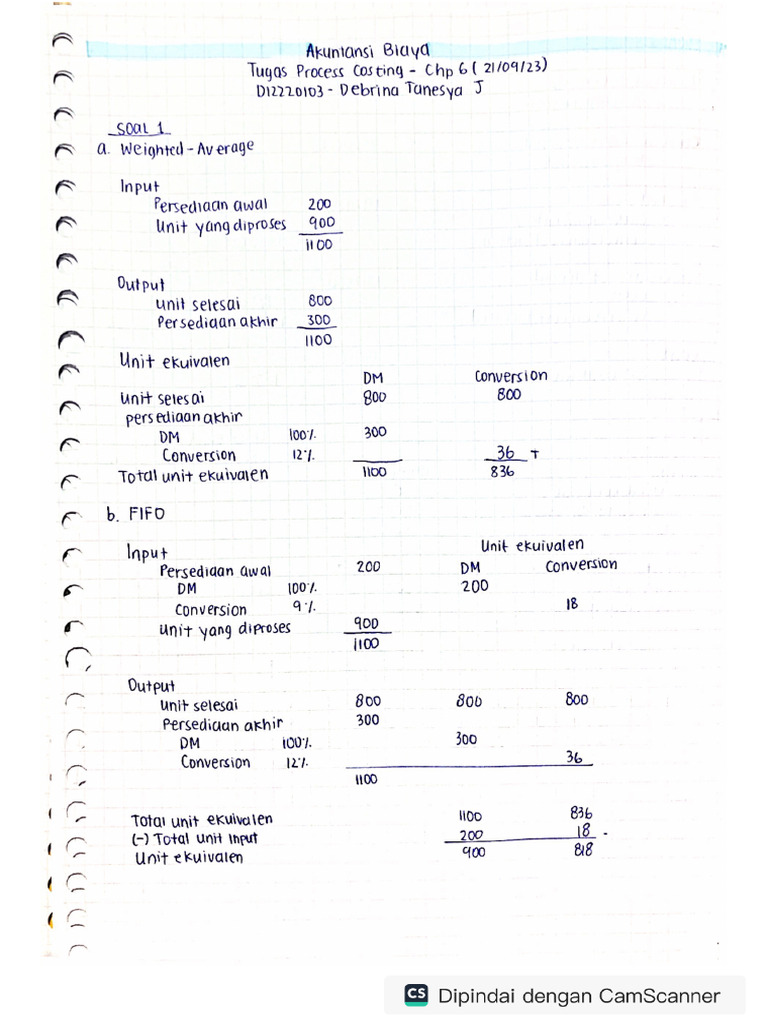 Akuntansi Biaya
Tugas Process Costing - Chp 6 ( 21/09/23)
D12220103 - Debrina Tanesya J
SOAL 1
a. Weighted - Average
Input
Persediaan awal 200
Unit yang diproses 900
1100
Output
Unit selesai 800
Persediaan akhir 300
1100
Unit ekuivalen
DM Conversion
Unit selesai 800 800
persediaan akhir
DM 100% 300
Conversion 12% 36 +
Total unit ekuivalen 1100 836
b. FIFO
Input Unit ekuivalen
Persediaan awal 200 DM Conversion
DM 100% 200
Conversion 9% 18
Unit yang diproses 900
1100
Output
Unit selesai 800 800 800
Persediaan akhir 300
DM 100% 300
Conversion 12% 36
1100
Total unit ekuivalen 1100 836
(-) Total unit input 200 18 -
Unit ekuivalen 900 818
CS Dipindai dengan CamScanner